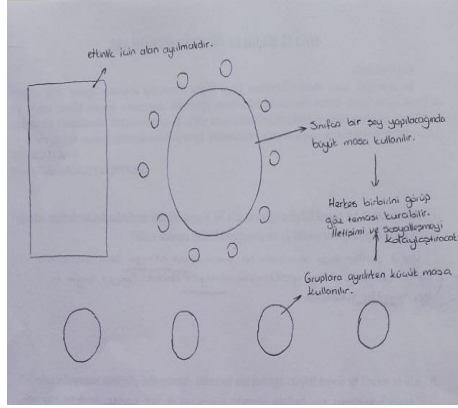 etkinlik için alan ayrılmalıdır.
Sınıfca bir şey yapılacağında
büyük masa kullanılır.
Herkes birbirini görüp
göz teması kurabilir.
İletişimi ve sosyalleşmeyi
kolaylaştıracatı
Gruplara ayrılırken küçük masa
kullanılır.